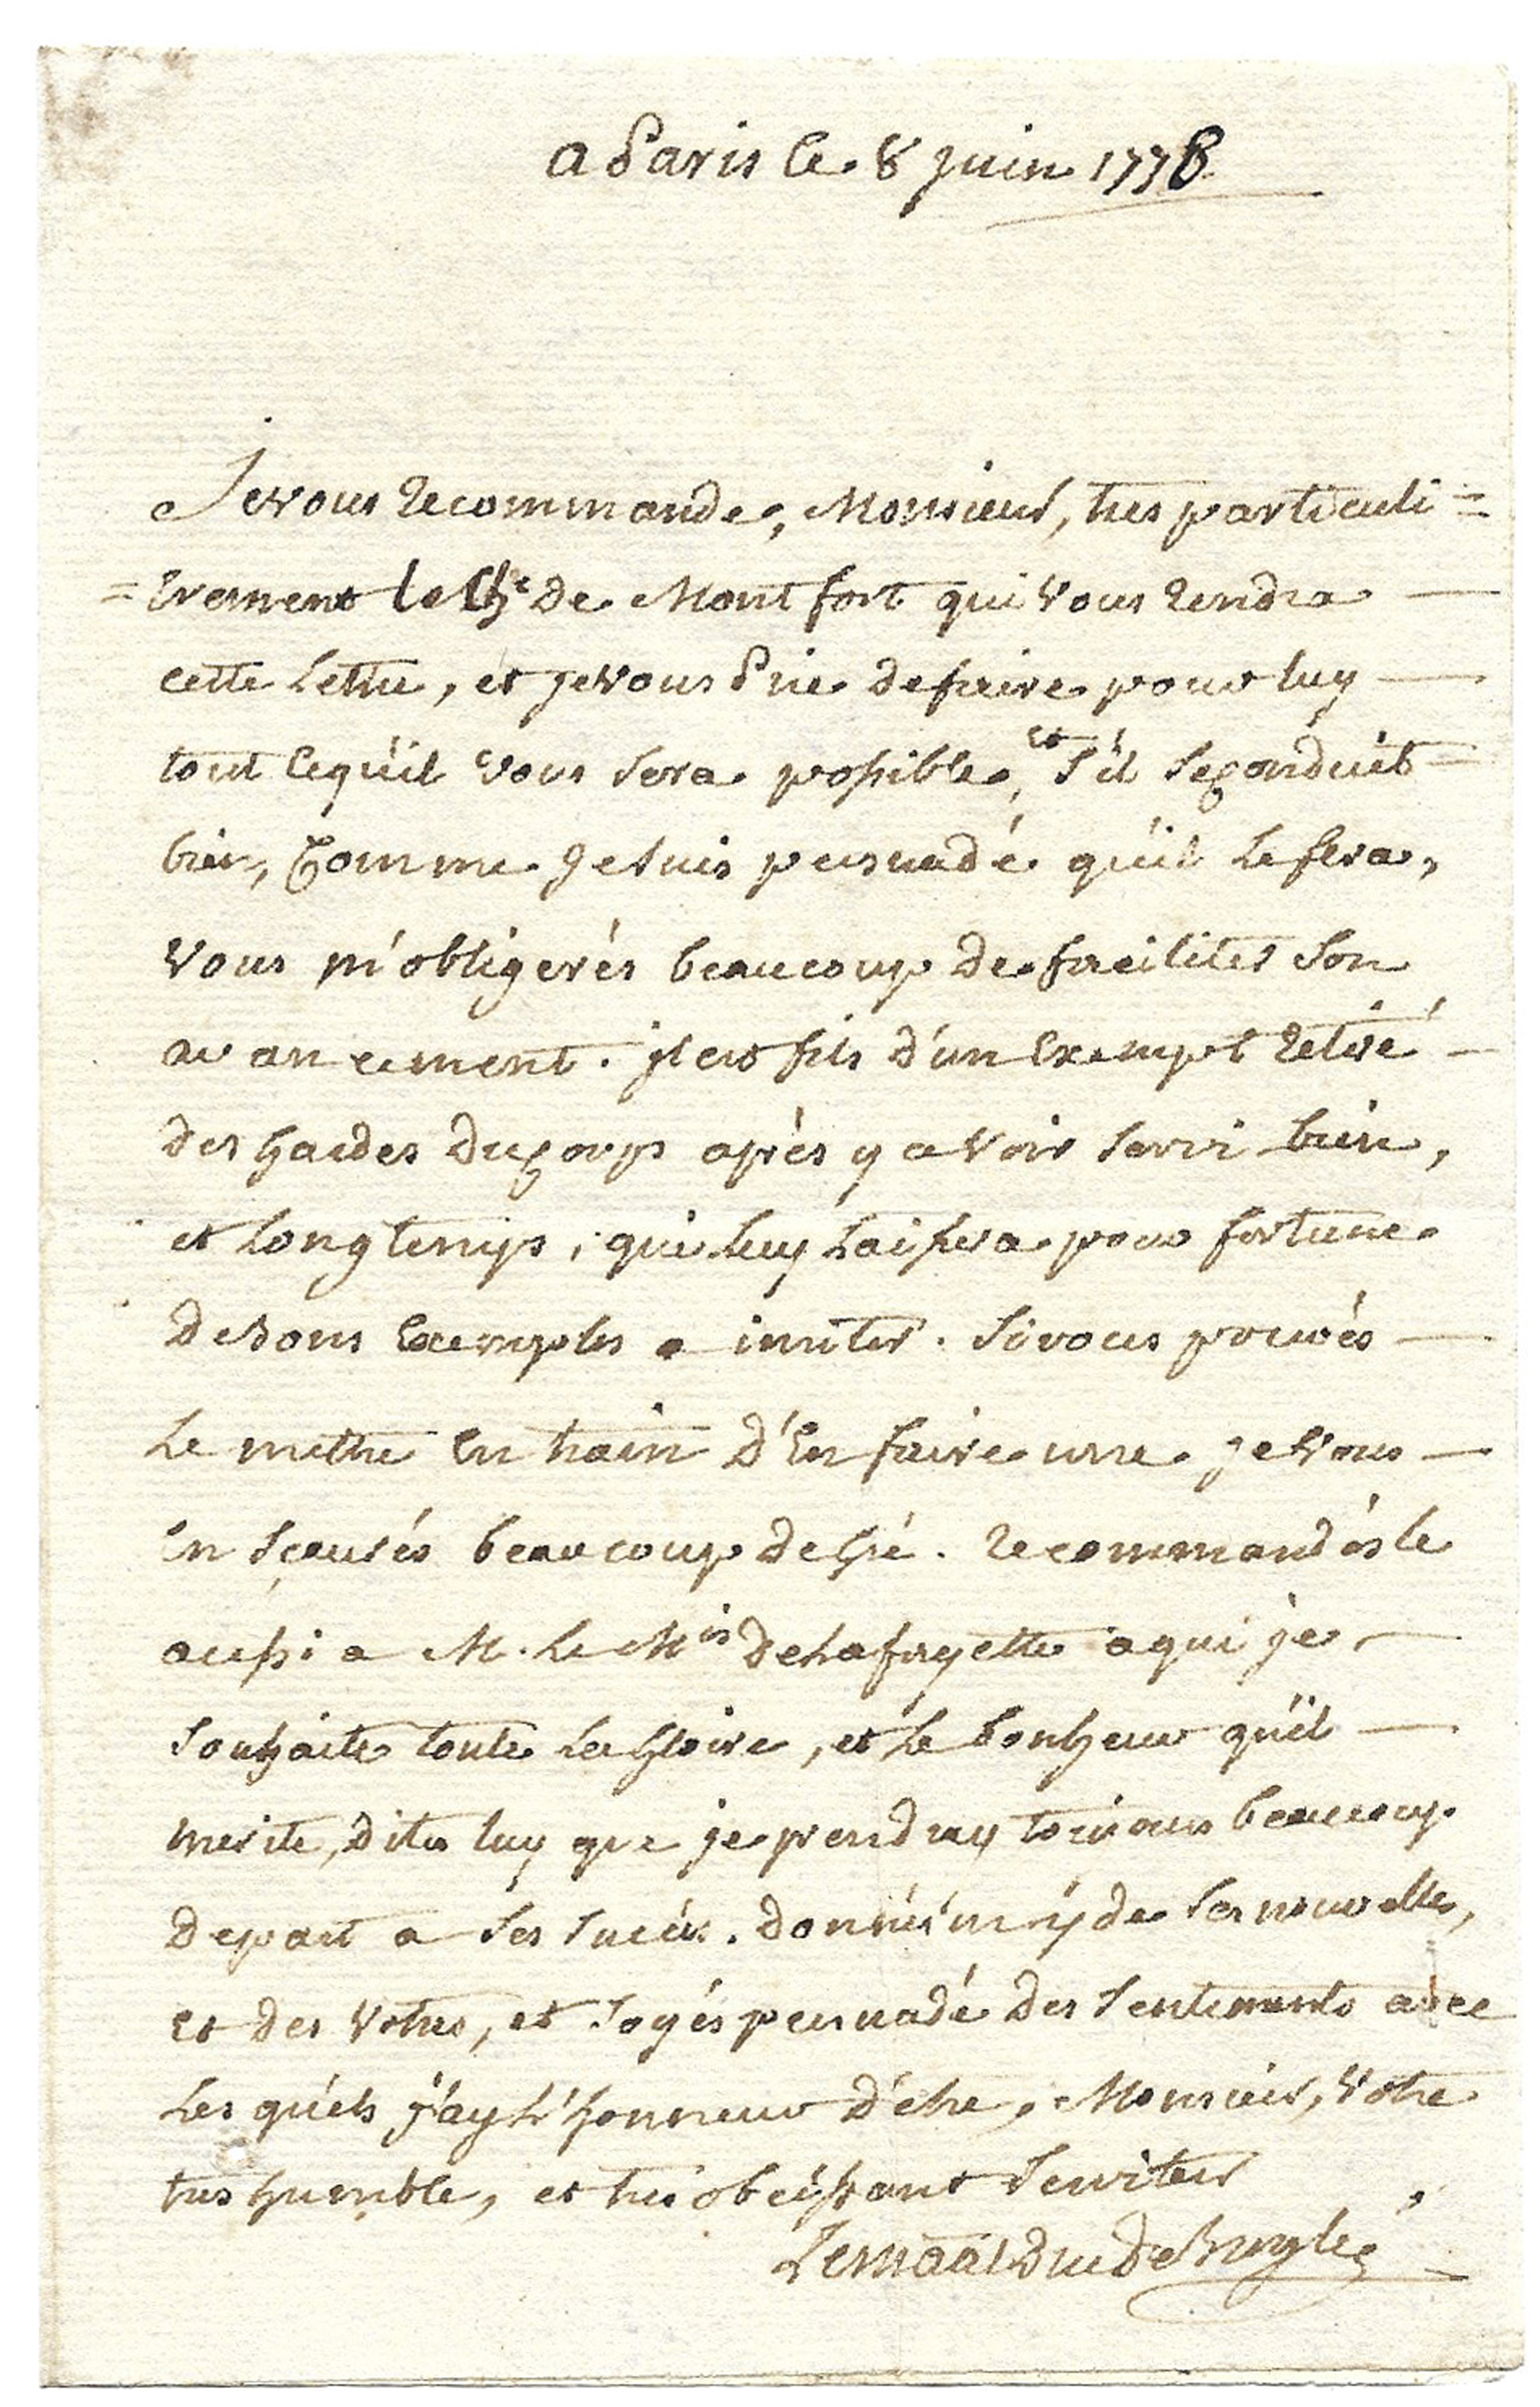 a Paris le 8 juin 1778
Je vous recommande, Monsieur, tres particuli=
=erement le Ch.er de Montfort qui vous rendra
cette Lettre, et je vous Prie de faire pour luy
tout ce qu'il vous sera possible, et s'il se conduit
bien, comme je suis persuadé qu'il le fera,
vous m'obligerés beaucoup de faciliter son
avancement. il est fils d'un Exempt retiré
des Gardes du corps après y avoir servi bien,
et Longtemps, qui luy Laissera pour fortune
de bons Exemples a imiter. Si vous pouvés
Le mettre En train d'En faire une je vous
En sçaurés beaucoup de Gré. recommandés le
aussi a M. Le M.is de Lafayette a qui je
souhaite toute La Gloire, et Le bonheur qu'il
merite, dites luy que je prendray toujours beaucoup
de part a ses succès. donnés m'y de ses nouvelles,
et des Votres, et soyés persuadé des sentiments avec
Les quels j'ay L'honneur d'être, Monsieur, Votre
tres humble, et tres obeissant serviteur
Le Maal Duc de Broglie